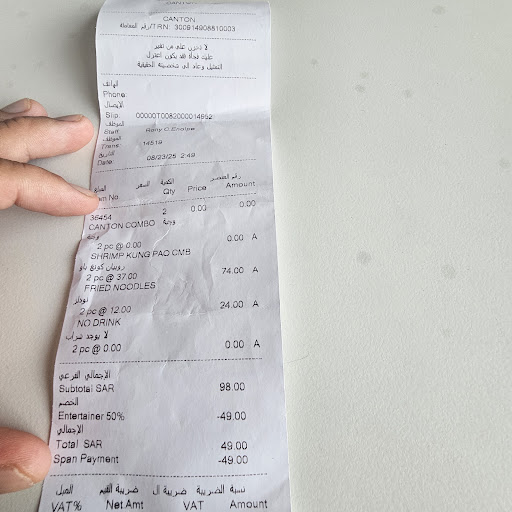 CANTON
رقم المعاملة/TRN: 300914908810003
لا تحزن على من تغير
عليك فجأة فقد يكون اعتزل
التمثيل وعاد الى شخصيته الحقيقية
الهاتف
Phone:
الإيصال
Slip: 00000T0082000014952
الموظف
Staff:
الموظف
Trans: 14519
التاريخ
Date: 08/23/25 2:49
المبلغ السعر الكمية رقم العنصر
Item No. Qty Price Amount
36454 2 0.00 0.00
CANTON COMBO وجبة
وجبة
2 pc @ 0.00 0.00 A
SHRIMP KUNG PAO CMB
روبيان كونغ باو
2 pc @ 37.00 74.00 A
FRIED NOODLES
نودلز
2 pc @ 12.00 24.00 A
NO DRINK
لا يوجد شراب
2 pc @ 0.00 0.00 A
الإجمالي الفرعي
Subtotal SAR 98.00
الخصم
Entertainer 50% -49.00
الإجمالي
Total SAR 49.00
Span Payment -49.00
المبلغ ضريبة القيم ضريبة ال نسبة الضريبة
VAT% Net.Amt VAT Amount